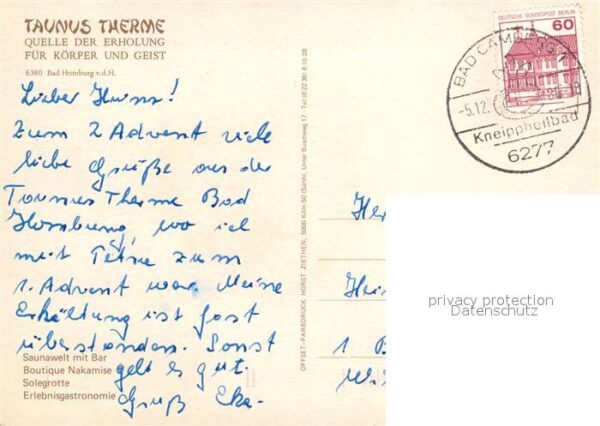 TAUNUS THERME
QUELLE DER ERHOLUNG
FÜR KÖRPER UND GEIST
6380 Bad Homburg v.d.H.
Lieber Heinz!
Zum 2 Advent viele
liebe Grüße aus der
Taunus Therme Bad
Homburg, wo ich
mit zum
1. Advent war. Meine
Erkältung ist fast
überstanden. Sonst
geht es gut.
Gruß
Saunawelt mit Bar
Boutique Nakamise
Solegrotte
Erlebnisgastronomie
OFFSET-FARBDRUCK HORST ZIETHEN, 5000 KÖLN 50 (Sürth), Unter Buschweg 17 · Tel. (0 22 36) 6 10 28
DEUTSCHE BUNDESPOST BERLIN
60
BAD CAMBERG
-5.12.
Kneippheilbad
6277
Her
1 B
privacy protection
Datenschutz